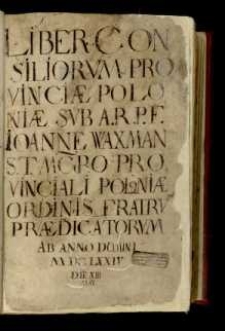 LIBER CON
SILIORVM PRO
VINCIÆ POLO
NIÆ SVB A.R.P.F.
IOANNE WAXMAN
S.T. MGRO PRO
VINCIALI POLONIÆ
ORDINIS FRATRV
PRÆDICATORVM
AB ANNO DOMINI
DIE XIII